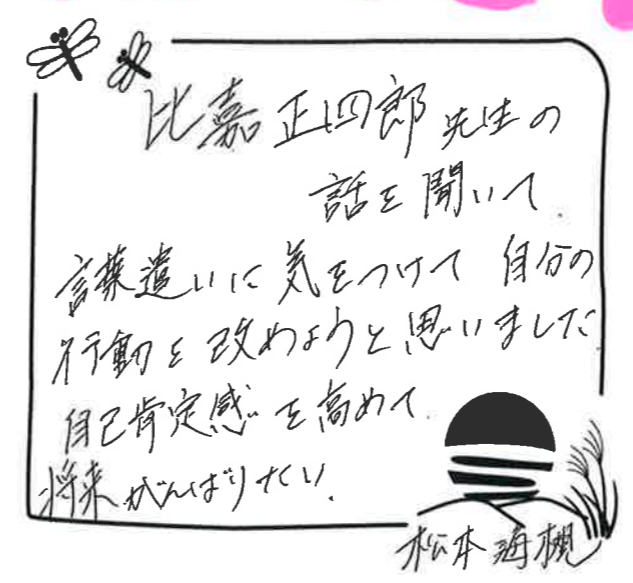 比嘉正四郎先生の
話を聞いて
言葉遣いに気をつけて自分の
行動を改めようと思いました
自己肯定感を高めて
将来がんばりたい.
松本海